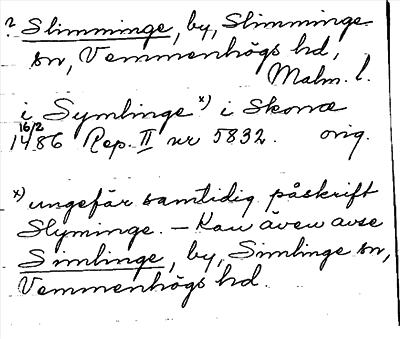 ? Slimminge, by, Slimminge
sn, Vemmenhögs hd,
Malm. l.
i Symlinge x) i Skonæ
16/2
1486 Rep. II nr 5832. orig.
x) ungefär samtidig påskrift
Slyminge. – Kan även avse
Simlinge, by, Simlinge sn,
Vemmenhögs hd.